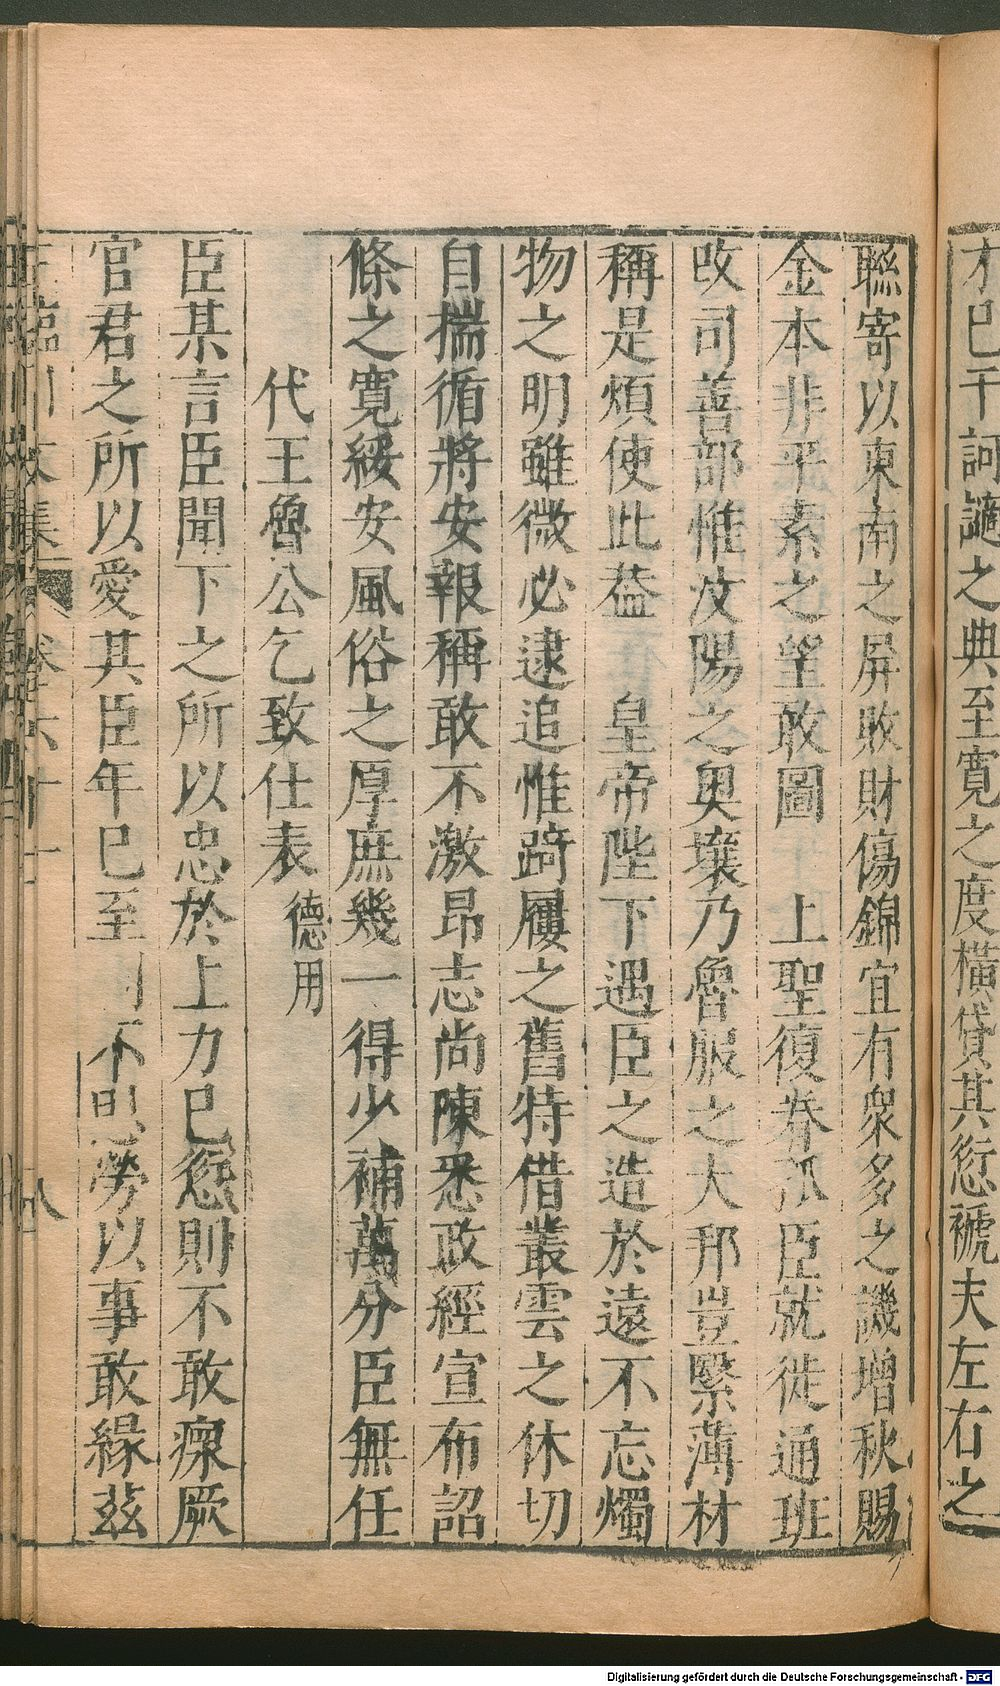 才已干訶譴之典至寬之度橫貸其愆褫夫左右之
聮寄以東南之屏敗財傷錦宜有衆多之譏增秩賜
金本非平素之望敢圖 上聖復眷孤臣就徙通班
改司善部惟汶陽之奥壤乃魯服之大邦豈緊薄材
稱是煩使此葢 皇帝陛下遇臣之造於遠不忘燭
物之明雖微必逮追惟踦屨之舊特借叢雲之休切
自揣循將安報稱敢不激昂志尚陳悉政經宣布詔
條之寛綏安風俗之厚庶幾一得少補萬分臣無任
代王魯公乞致仕表 德用
臣某言臣聞下之所以忠於上力已愆則不敢瘝厥
官君之所以愛其臣年已至則不思勞以事敢緣兹
王臨川文集 卷六十一 八